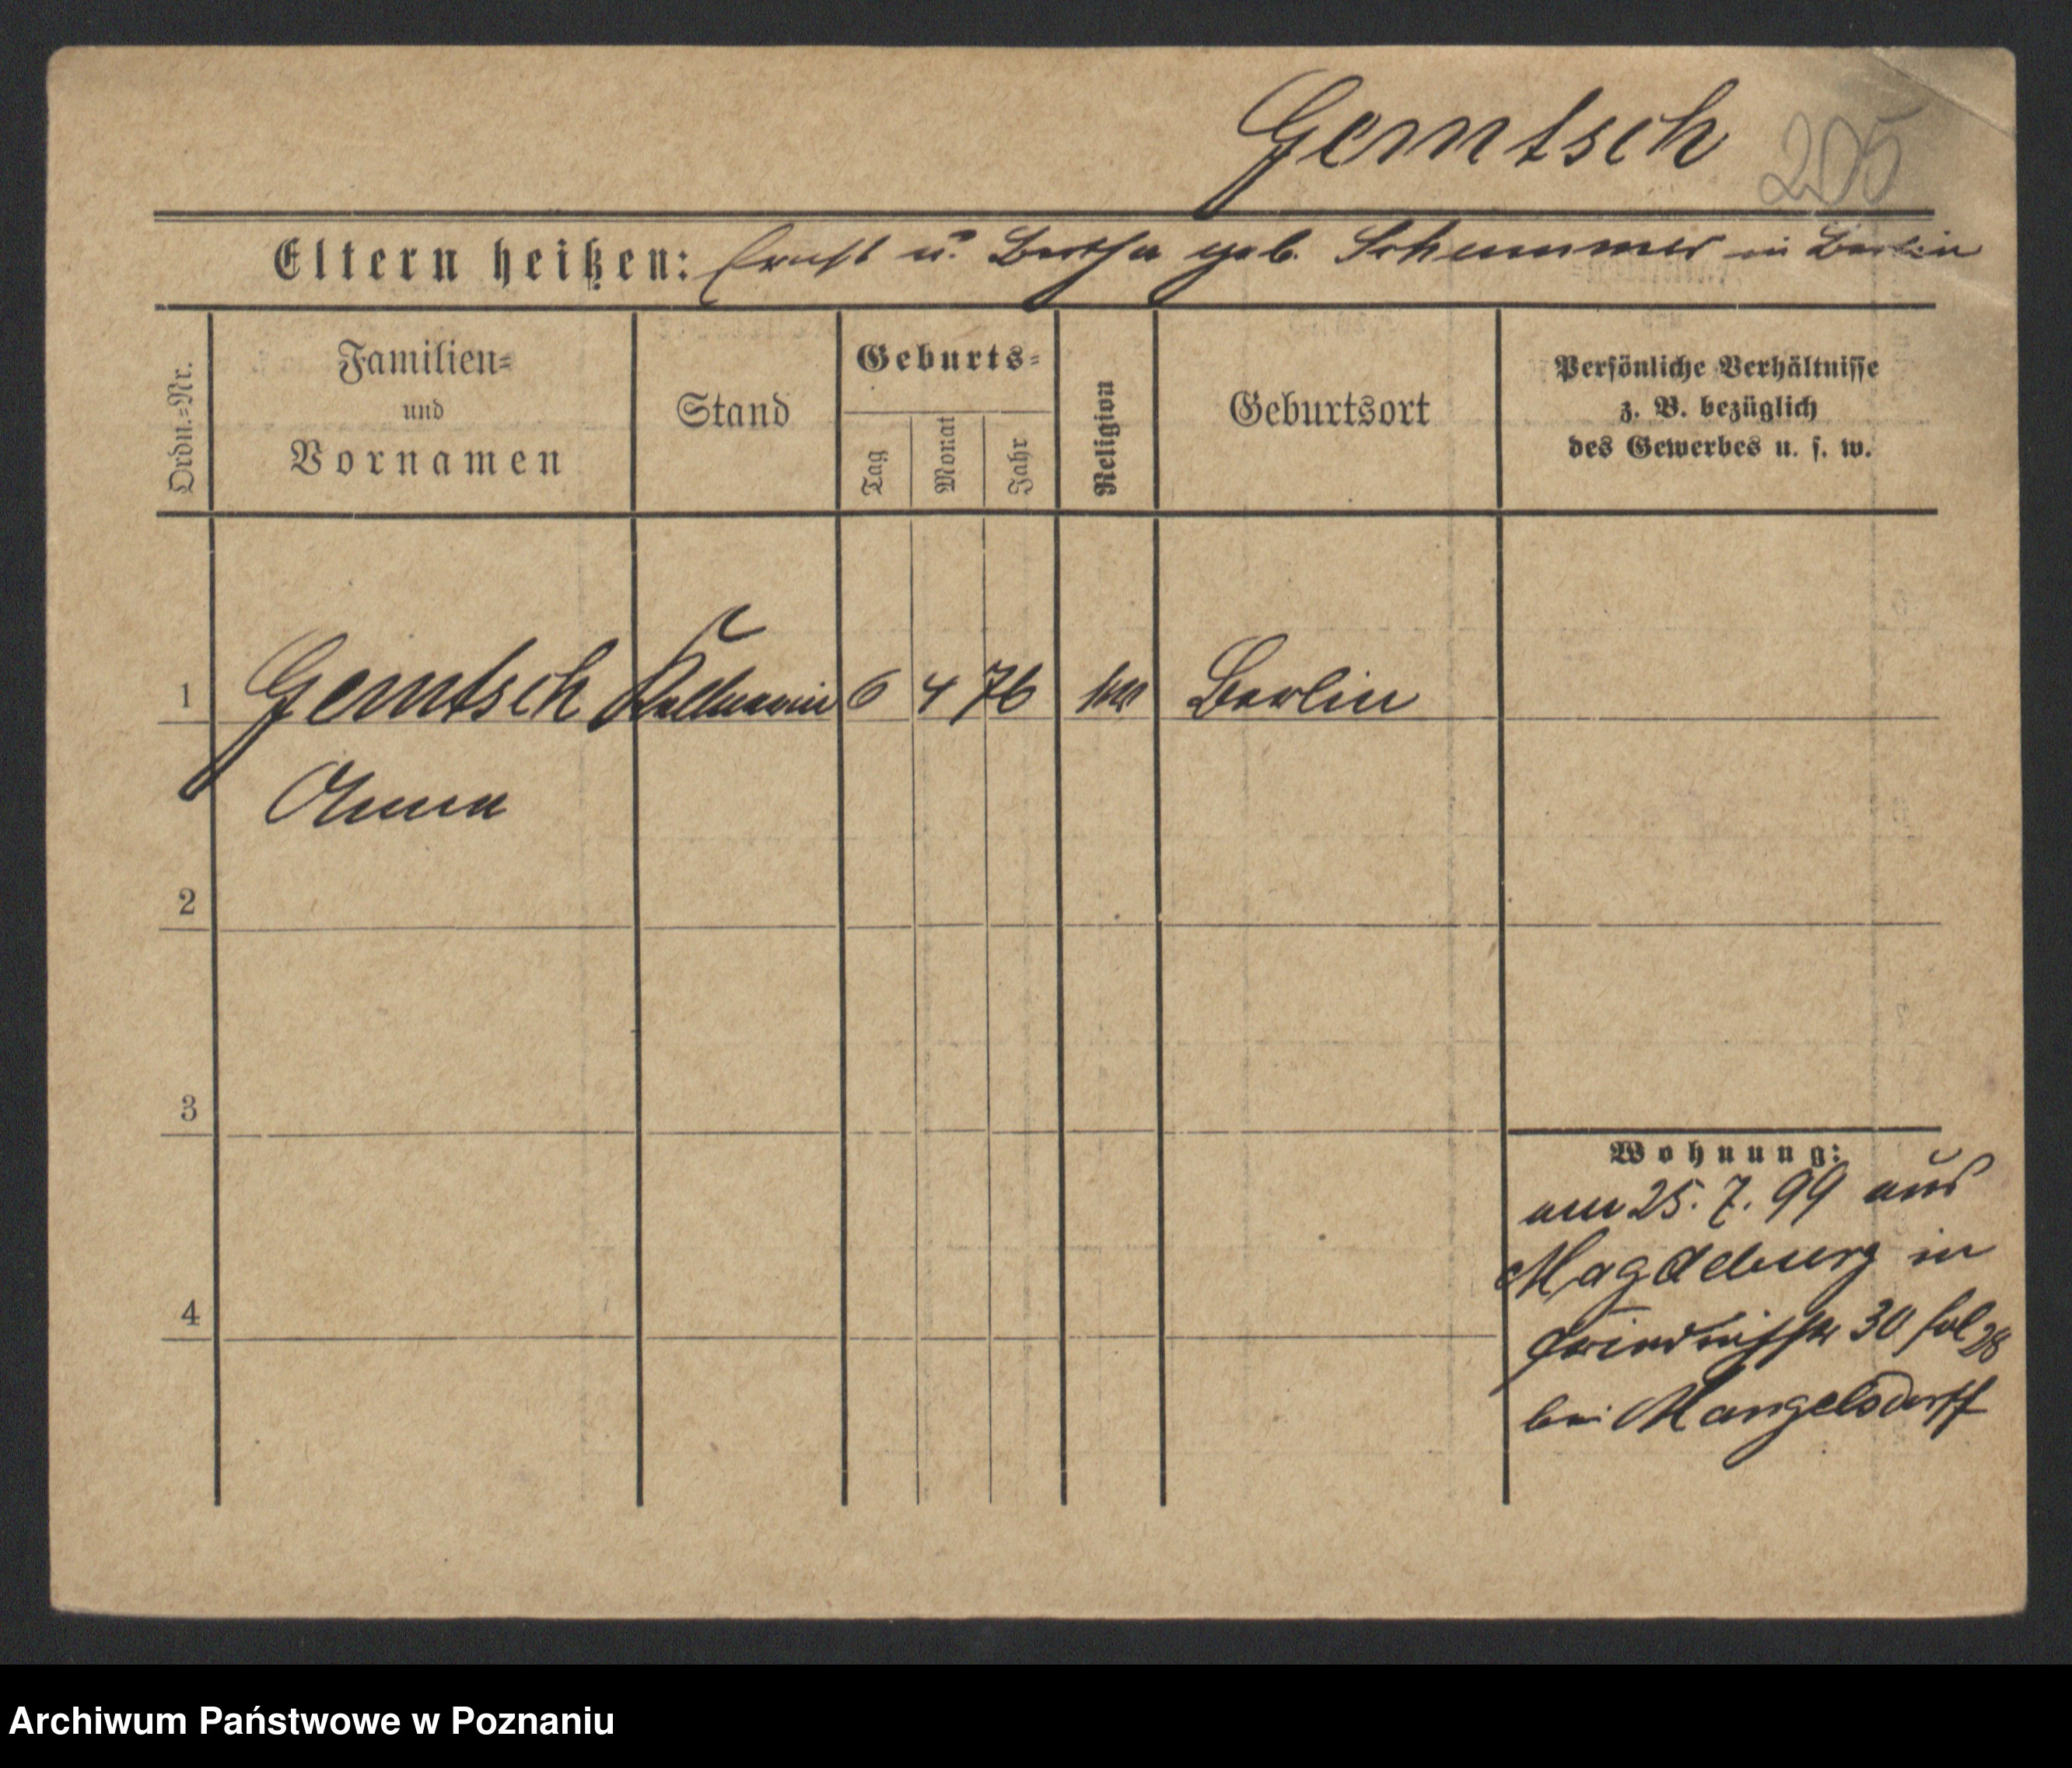 Gemtsch 205
Eltern heißen: Ernst u. Bertha geb. Schemmer in Berlin
Ordn.=Nr.
Familien=
und
Vornamen
Stand
Geburts=
Tag
Monat
Jahr
Religion
Geburtsort
Persönliche Verhältnisse
z. B. bezüglich
des Gewerbes u. s. w.
1 Gemtsch Kellnerin 6 4 76 Berlin
Anna
2
3
4
Wohnung:
am 25. 7. 99 aus
Magdeburg in
30 fol 28
bei Mangelsdorff
Archiwum Państwowe w Poznaniu